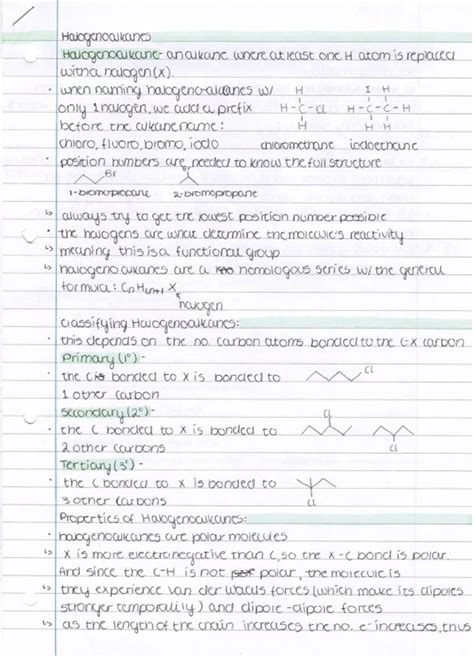 Halogenoalkanes
Halogenoalkane- an alkane where at least one H atom is replaced
with a halogen (X).
• when naming halogeno-alkanes w/
only 1 halogen, we add a prefix
before the alkane name:
chloro, fluoro, bromo, iodo
H
H-C-Cl
H
chloromethane
I H
H-C-C-H
H H
iodoethane
• position numbers are needed to know the full structure
Br
1-bromopropane
Br
2-bromopropane
↳ always try to get the lowest position number possible
• the halogens are what determine the molecule's reactivity
↳ meaning this is a functional group
↳ halogenoalkanes are a homologous series w/ the general
formula: CnH2n+1 X
halogen
Classifying Halogenoalkanes:
• this depends on the no. carbon atoms bonded to the C-X carbon
Primary (1°) -
• the C is bonded to X is bonded to
1 other carbon
Cl
Secondary (2°) -
• the C bonded to X is bonded to
2 other carbons
Cl
Cl
Tertiary (3°) -
• the C bonded to X is bonded to
3 other carbons
Cl
Properties of Halogenoalkanes:
• halogenoalkanes are polar molecules
↳ X is more electronegative than C, so the X-C bond is polar.
And since the C-H is not polar, the molecule is
↳ they experience van der waals forces (which make its dipoles
stronger temporarily) and dipole-dipole forces
↳ as the length of the chain increases the no. e- increases, thus